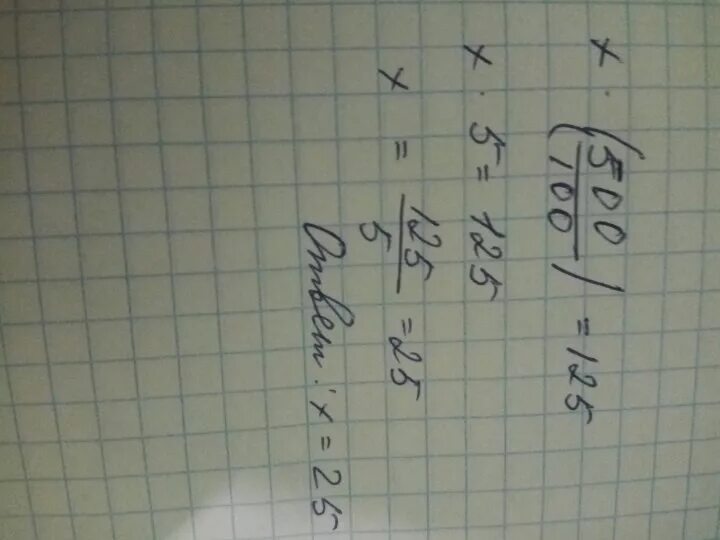 x · (500/100) = 125
x · 5 = 125
x = 125/5 = 25
Ответ: x = 25